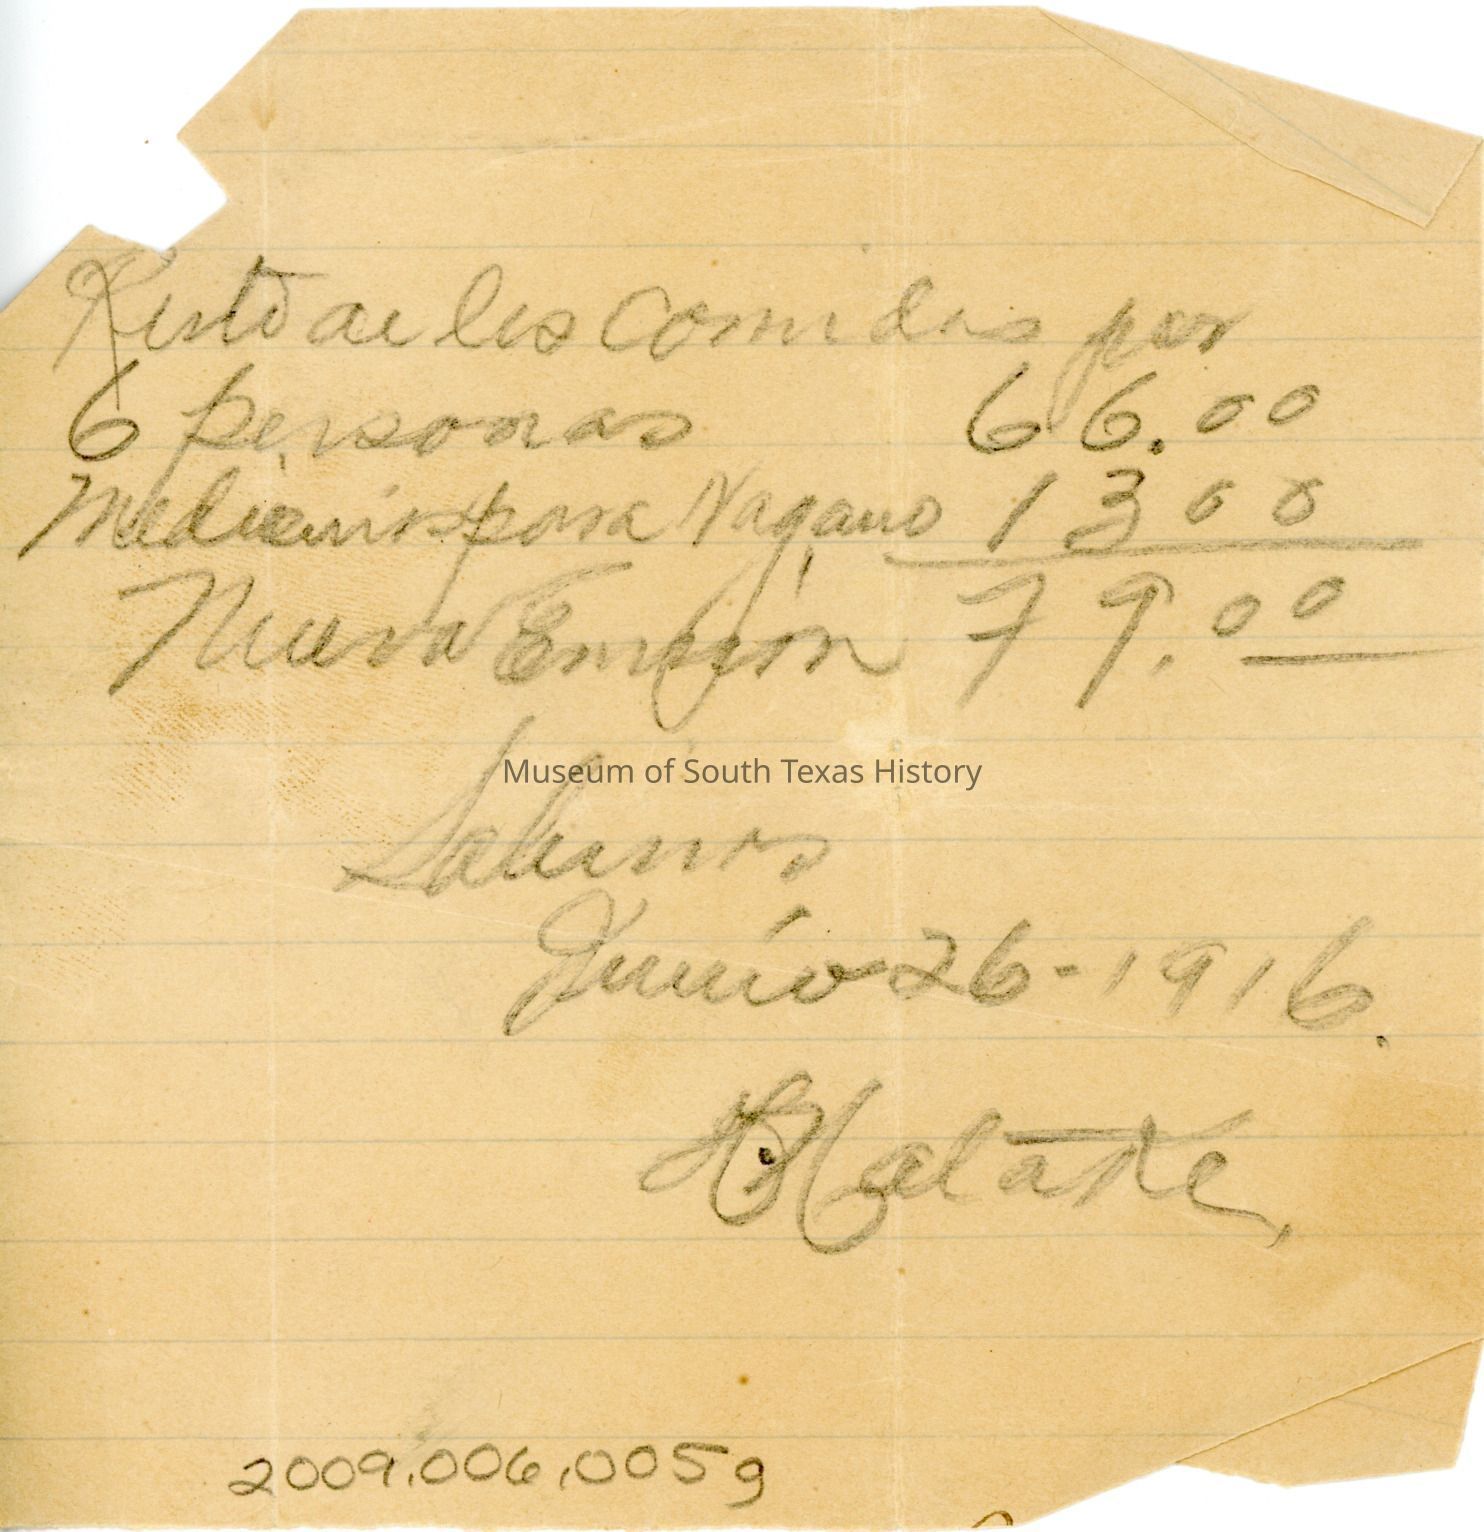 Resto de les comidas por
6 personas 66.00
Medicinas para Nagano 13 00
Nueva Emición 79.00
Museum of South Texas History
Sabinas
Junio 26-1916.
Hatake,
2009.006.005g